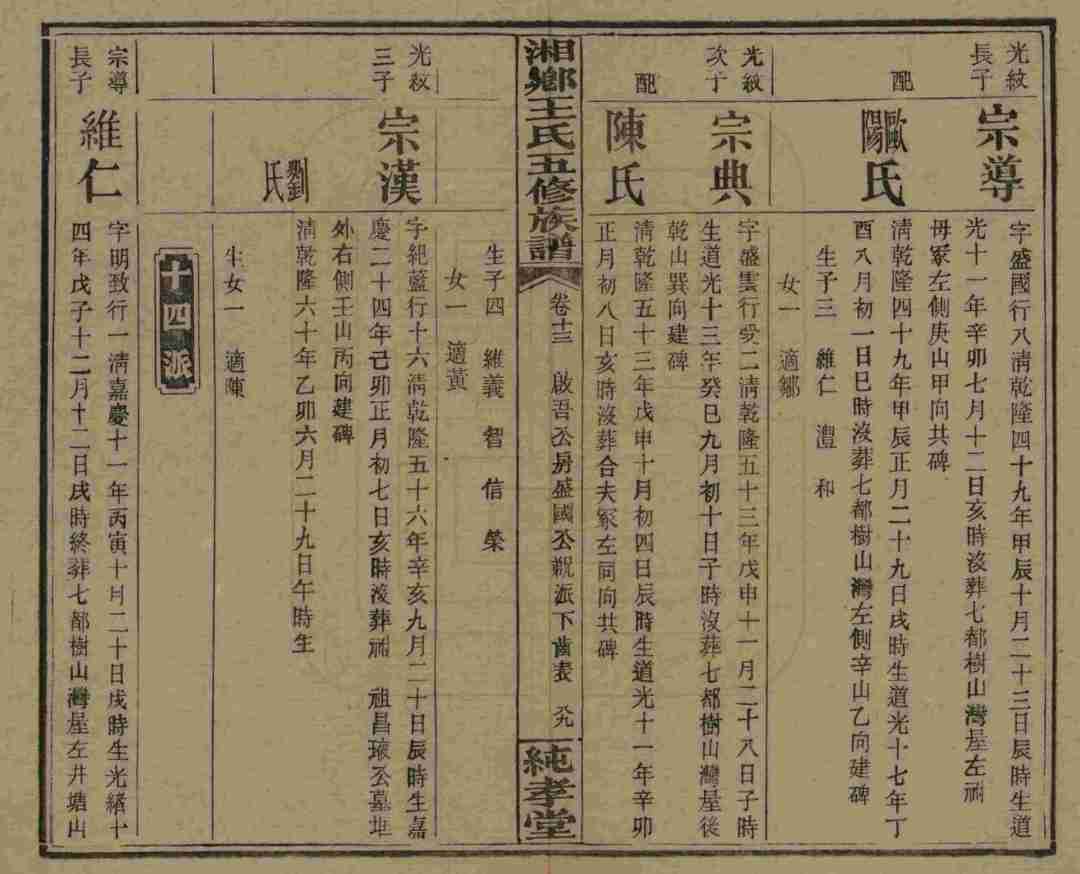 光紋長子
宗導
字盛國行八清乾隆四十九年甲辰十月二十三日辰時生道
光十一年辛卯七月十二日亥時沒葬七都樹山灣屋左祔
母冢左側庚山甲向共碑
配
歐陽氏
清乾隆四十九年甲辰正月二十九日戌時生道光十七年丁
酉八月初一日巳時沒葬七都樹山灣左側辛山乙向建碑
生子三 維仁 灃 和
女一 適鄒
光紋次子
宗典
字盛雲行癸二清乾隆五十三年戊申十一月二十八日子時
生道光十三年癸巳九月初十日子時沒葬七都樹山灣屋後
乾山巽向建碑
配
陳氏
清乾隆五十三年戊申十月初四日辰時生道光十一年辛卯
正月初八日亥時沒葬合夫冢左同向共碑
湘鄉王氏五修族譜
卷十三 啟吾公房盛國公親派下齒表 九
純孝堂
生子四 維義 智 信 榮
女一 適黃
光紋三子
宗漢
字紹藍行十六清乾隆五十六年辛亥九月二十日辰時生嘉
慶二十四年己卯正月初七日亥時沒葬祔 祖昌璥公墓堆
外右側壬山丙向建碑
劉氏
清乾隆六十年乙卯六月二十九日午時生
生女一 適陳
十四派
宗導長子
維仁
字明致行一清嘉慶十一年丙寅十月二十日戌時生光緒十
四年戊子十二月十二日戌時終葬七都樹山灣屋左井塘山